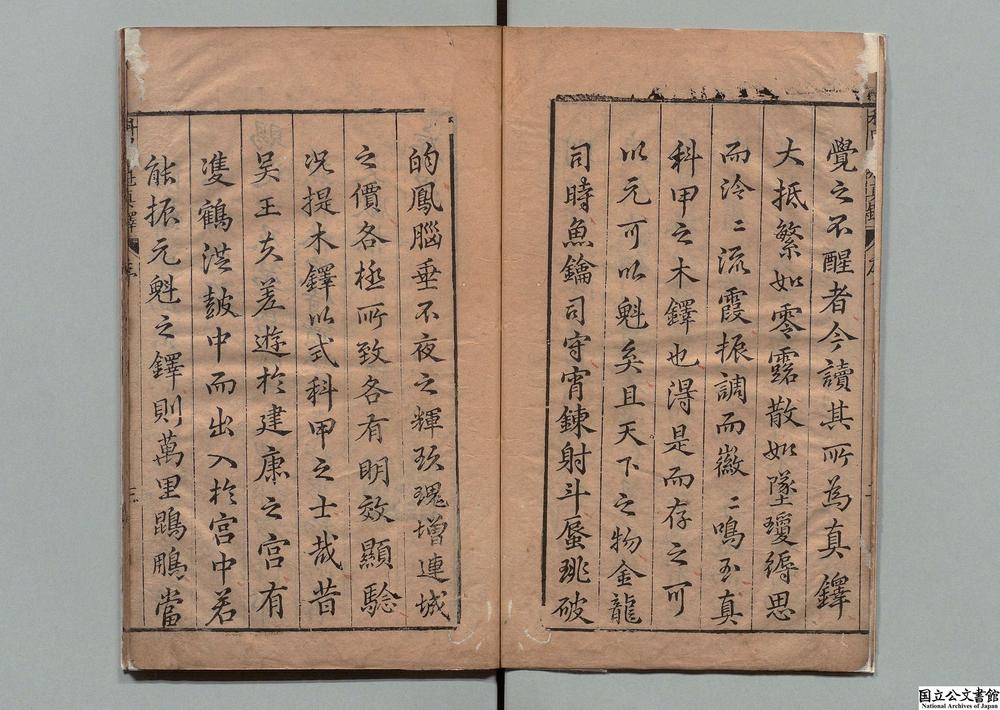 覺之不醒者今讀其所為真鐸
大抵繁如零露散如墜瓊縟思
而泠〻流霞振調而徽〻鳴玉真
科甲之木鐸也得是而存之可
以元可以魁矣且天下之物金龍
司時魚鑰司守宵鍊射斗蜃珧破
的鳳腦垂不夜之輝玖瑰增連城
之價各極所致各有明效顯驗
況提木鐸以式科甲之士哉昔
吴王夫差遊於建康之宮有
隻鶴洪皷中而出入於宮中若
能振元魁之鐸則萬里鵾鵬當
国立公文書館
National Archives of Japan